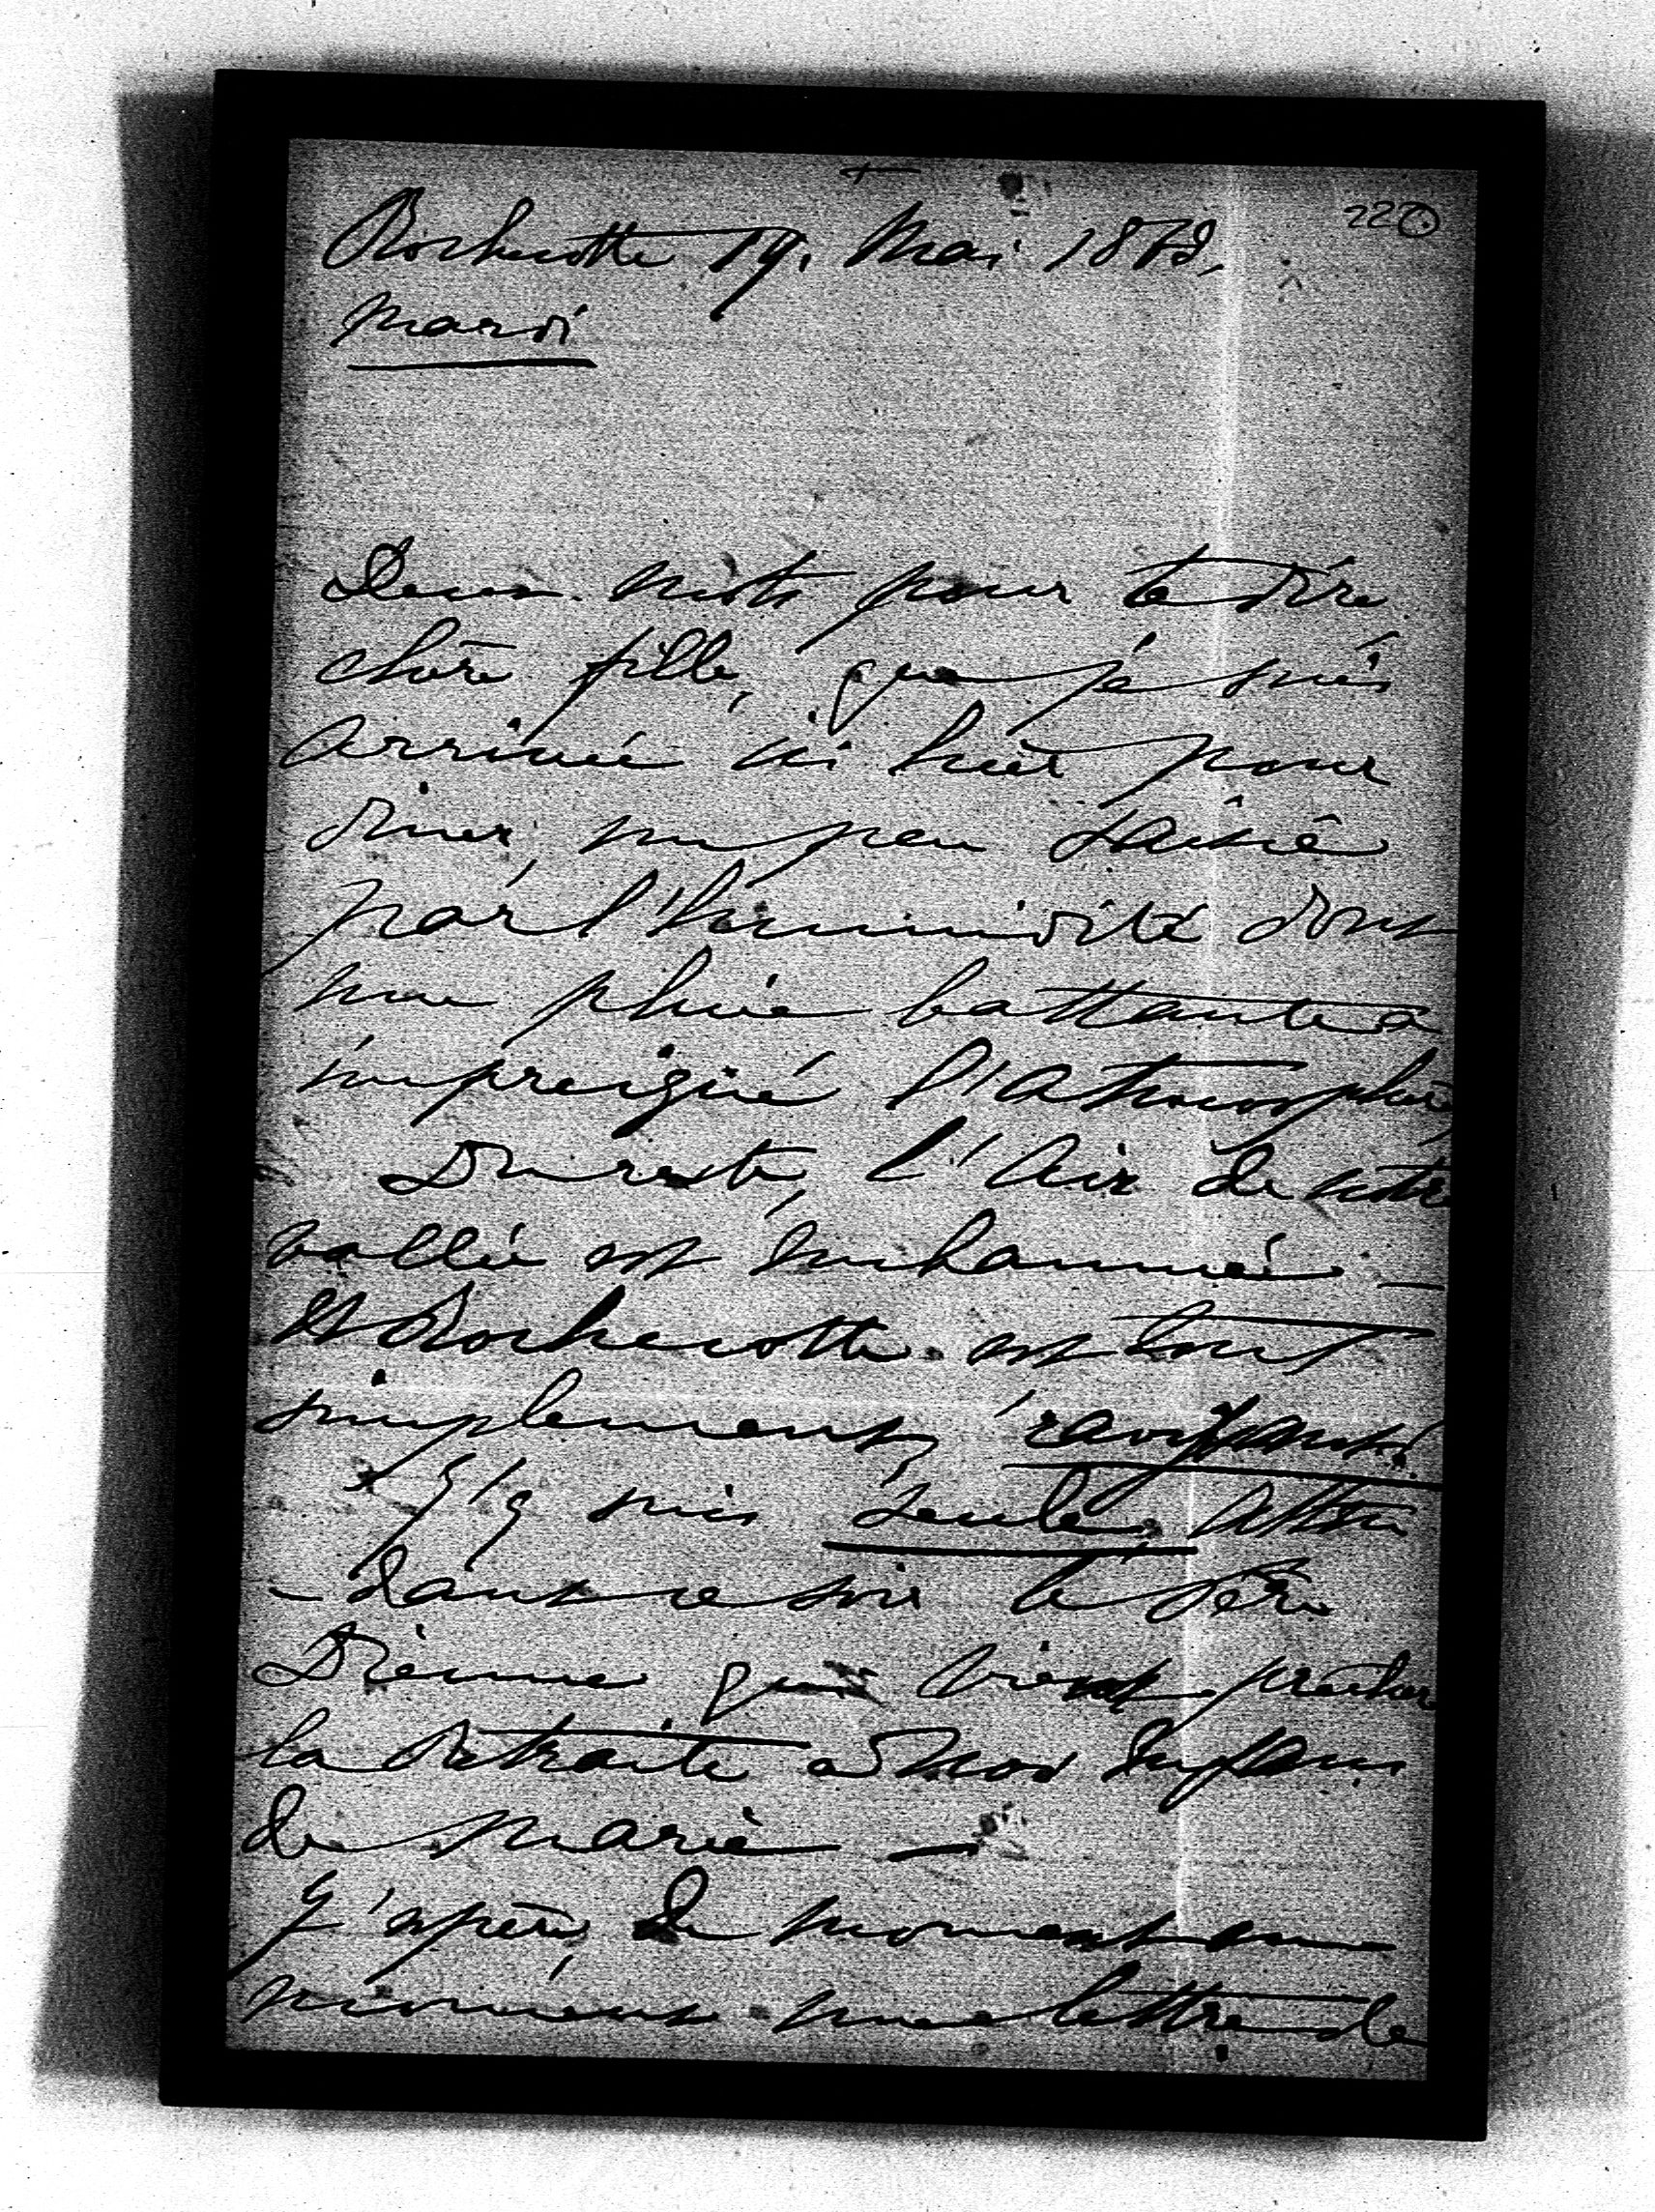 +
220
Rochecotte 14. Mai 1878.
mardi
Deux mots pour te dire
chère fille, que je suis
arrivée ici hier pour
diner, un peu
par l'humidité dont
une pluie battante a
impreigné l'atmosphère,
Du reste, l'air de notre
vallée est embaumé —
Et Rochecotte est tout
simplement, ravissant!
J'y suis seule, atten
- dant ce soir le Père
qui vient prêcher
la Retraite à nos Enfans
de Marie —
J'espère, de moment en
moment une lettre de